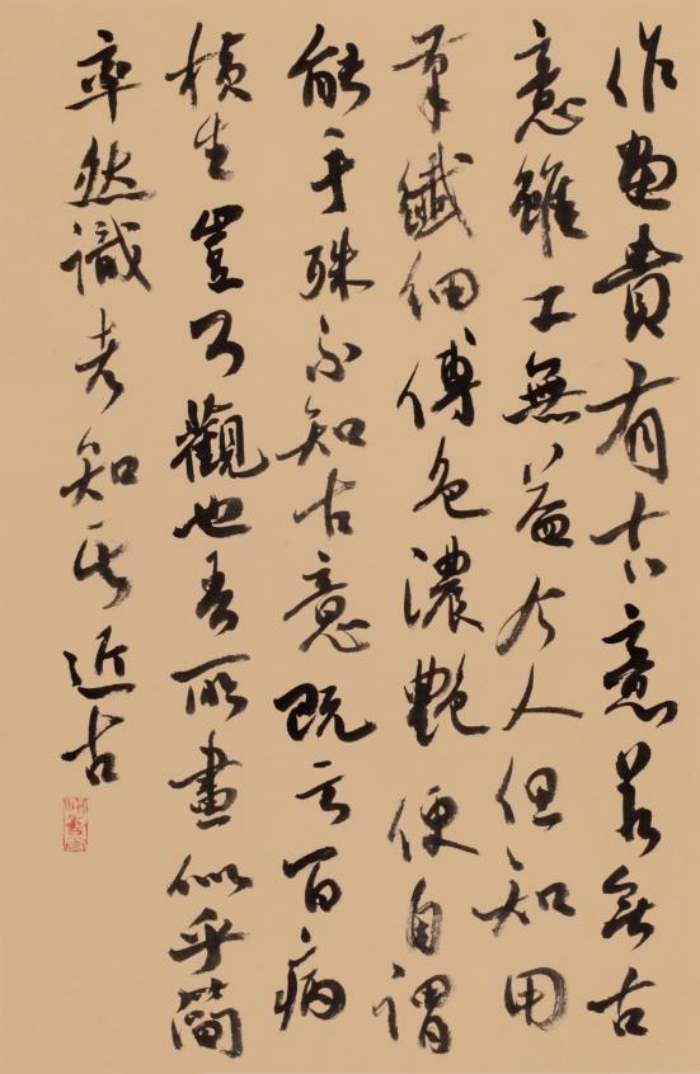 作画貴有古意若無古
意雖工無益今人但知用
筆纖細傅色濃艷便自謂
能手殊不知古意既亏百病
橫生豈可觀也吾所畫似乎簡
率然識者知其近古